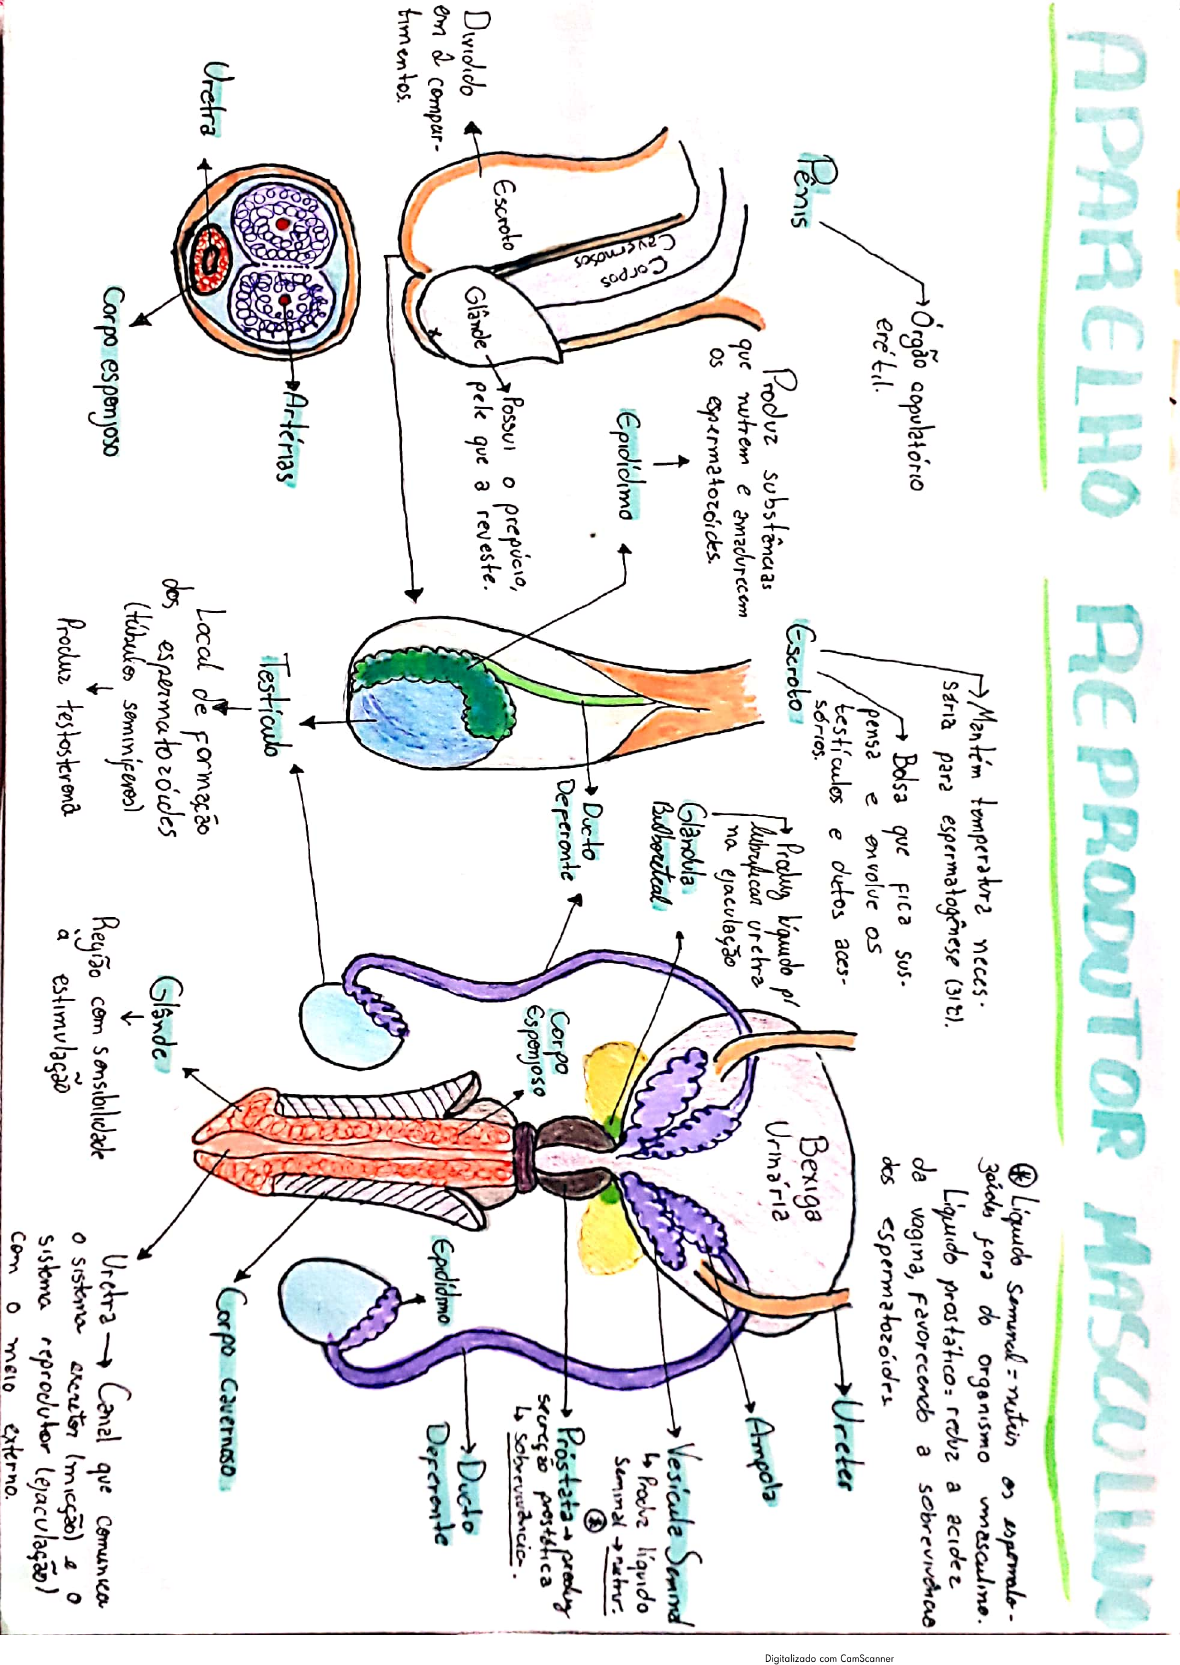 APARELHO REPRODUTOR MASCULINO
Pênis
Órgão copulatório
erétil.
Dividido
em 2 compar-
timentos.
Escroto
Corpos
Cavernosos
Glânde
Possui o prepúcio,
pele que a reveste.
Uretra
Corpo esponjoso
Artérias
Escroto
Mantém temperatura neces-
sária para espermatogênese
Bolsa que fica sus-
pensa e envolve os
testículos e dutos aces-
sórios.
Produz substâncias
que nutrem e amadurecem
os espermatozóides.
Epidídimo
Ducto
Deferente
Testículo
Local de formação
dos espermatozóides
(túbulos seminíferos)
Produz testosterona
⊛ Líquido seminal = nutrir os espermato-
zóides fora do organismo masculino.
Líquido prostático = reduz a acidez
da vagina, favorecendo a sobrevivência
dos espermatozóides.
Glândula
Bulboretral
Produz líquido p/
lubrificar uretra
na ejaculação
Bexiga
Urinária
Ureter
Ampola
Vesícula Seminal
↳ Produz líquido
seminal → nutrir.
⊛
Próstata → produz
secreção prostática
↳ sobrevivência.
Ducto
Deferente
Epidídimo
Corpo
Esponjoso
Glânde
Região com sensibilidade
a estimulação
Corpo Cavernoso
Uretra → Canal que comunica
o sistema excretor (micção) e o
sistema reprodutor (ejaculação)
com o meio externo.
Digitalizado com CamScanner